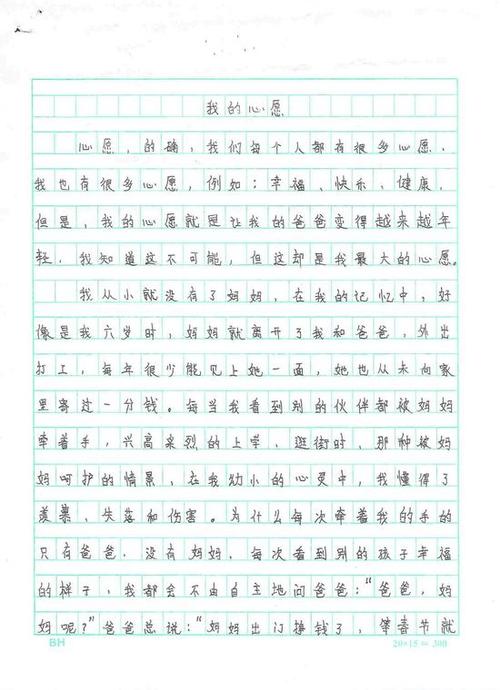 我的心愿
心愿，的确，我们每个人都有很多心愿，
我也有很多心愿，例如：幸福、快乐、健康，
但是，我的心愿就是让我的爸爸变得越来越年
轻，我知道这不可能，但这却是我最大的心愿。
我从小就没有了妈妈，在我的记忆中，好
像是我六岁时，妈妈就离开了我和爸爸，外出
打工，每年很少能见上她一面，她也从未向家
里寄过一分钱。每当我看到别的伙伴都被妈妈
牵着手，兴高采烈的上学、逛街时，那种被妈
妈呵护的情景，在我幼小的心灵中，我懂得了
羡慕、失落和伤害。为什么每次牵着我的手的
只有爸爸，没有妈妈，每次看到别的孩子幸福
的样子，我都会不由自主地问爸爸：“爸爸，妈
妈呢？”爸爸总说：“妈妈出门挣钱了，等春节就
BH
20×15=300